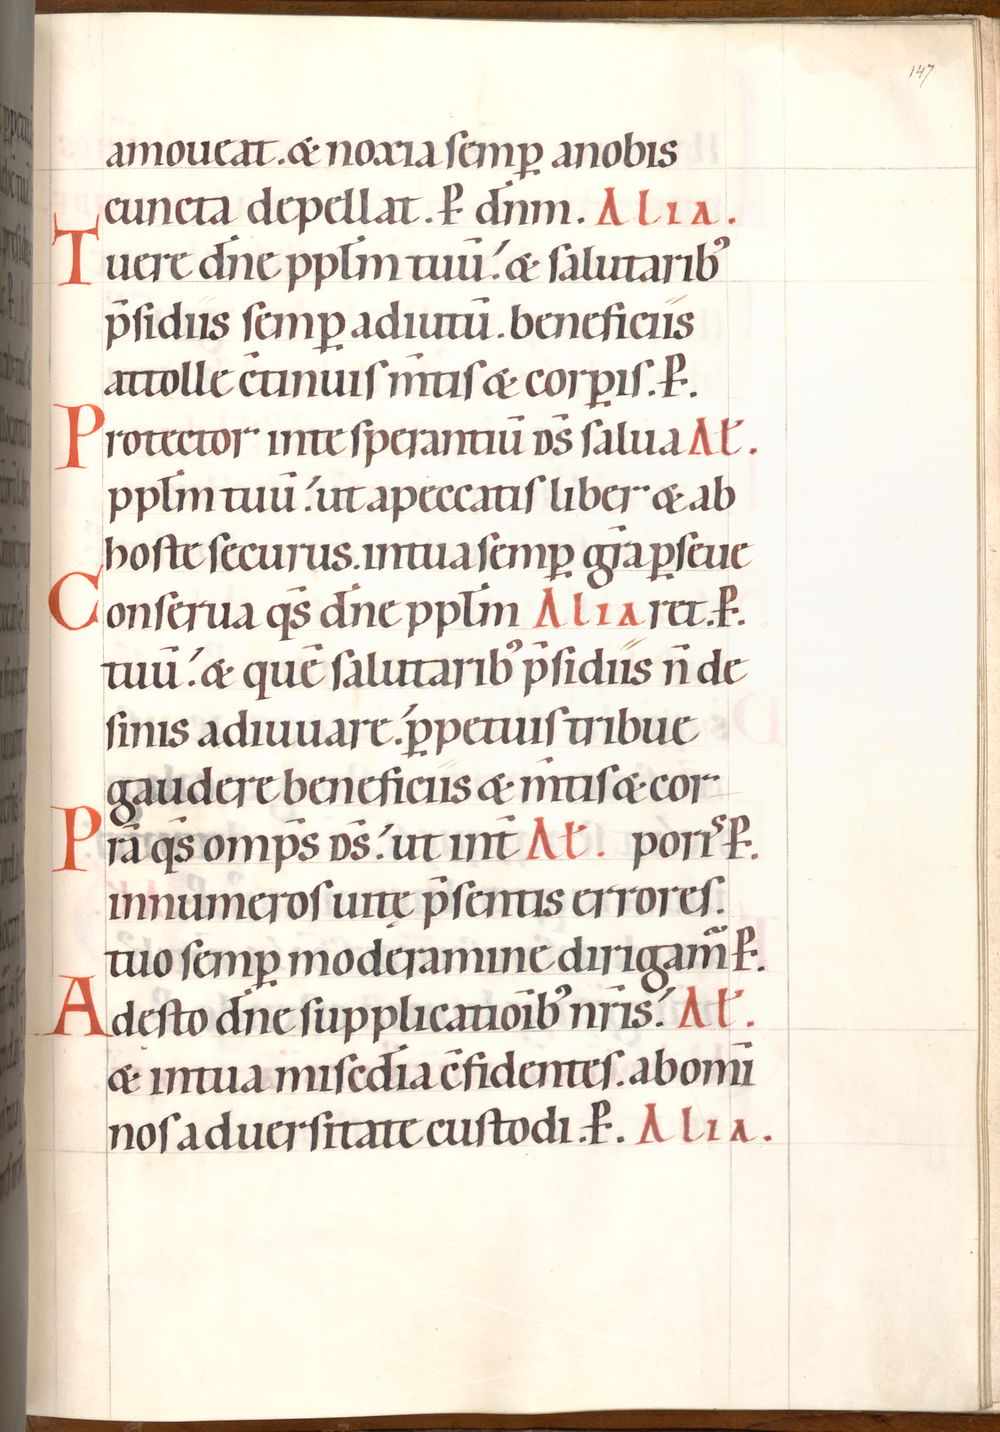 147
amoueat. & noxia semꝑ anobis
cuncta depellat. P̄ dn̄m. Alia.
Tuere dn̄e ppl̄m tuū.' & salutarib᾽
p̄sidiis semꝑ adiutū. beneficiis
attolle c̄tinuis m̄tis & corꝑis. P̄.
Protector inte sperantiū ds̄ salua Al̄.
ppl̄m tuū.' ut apeccatis liber & ab
hoste securus. intua semꝑ gr̄a ꝑseue
Conserua qs̄ dn̄e ppl̄m Alia ret. P̄.
tuū.' & quē salutarib᾽ p̄sidiis n̄ de
sinis adiuuare.' ꝑpetuis tribue
gaudere beneficiis & m̄tis & cor
Prā qs̄ omp̄s ds̄.' ut int̄ Al̄. poris P̄.
innumeros uitę p̄sentis errores.
tuo semꝑ moderamine dirigam̄ P̄.
Adesto dn̄e supplicatioīb᾽ nr̄is.' Al̄.
& intua misc̄dia c̄fidentes. abomī
nos aduersitate custodi. P̄. Alia.